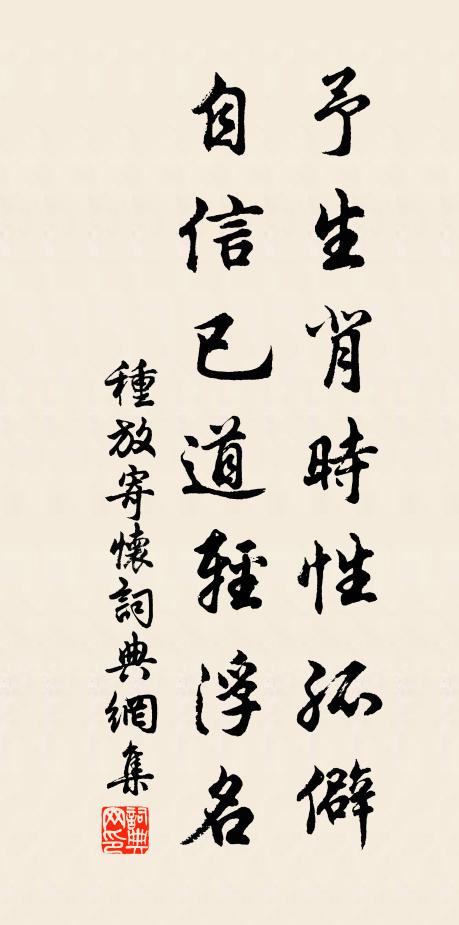 予生背時性孤僻
自信已道輕浮名
種放寄懷詞典網集
詞典网印